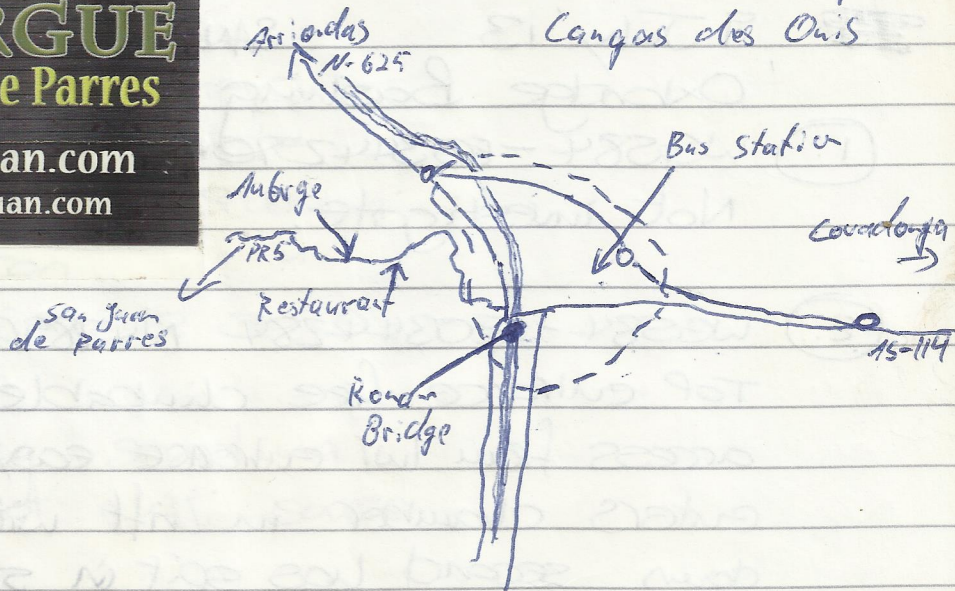 RGUE
e Parres
an.com
uan.com
Arriondas
N-625
Cangas des Onis
Bus Station
Auberge
PR5
Covadonga
Restaurant
San Juan
de Parres
Roman
Bridge
AS-114